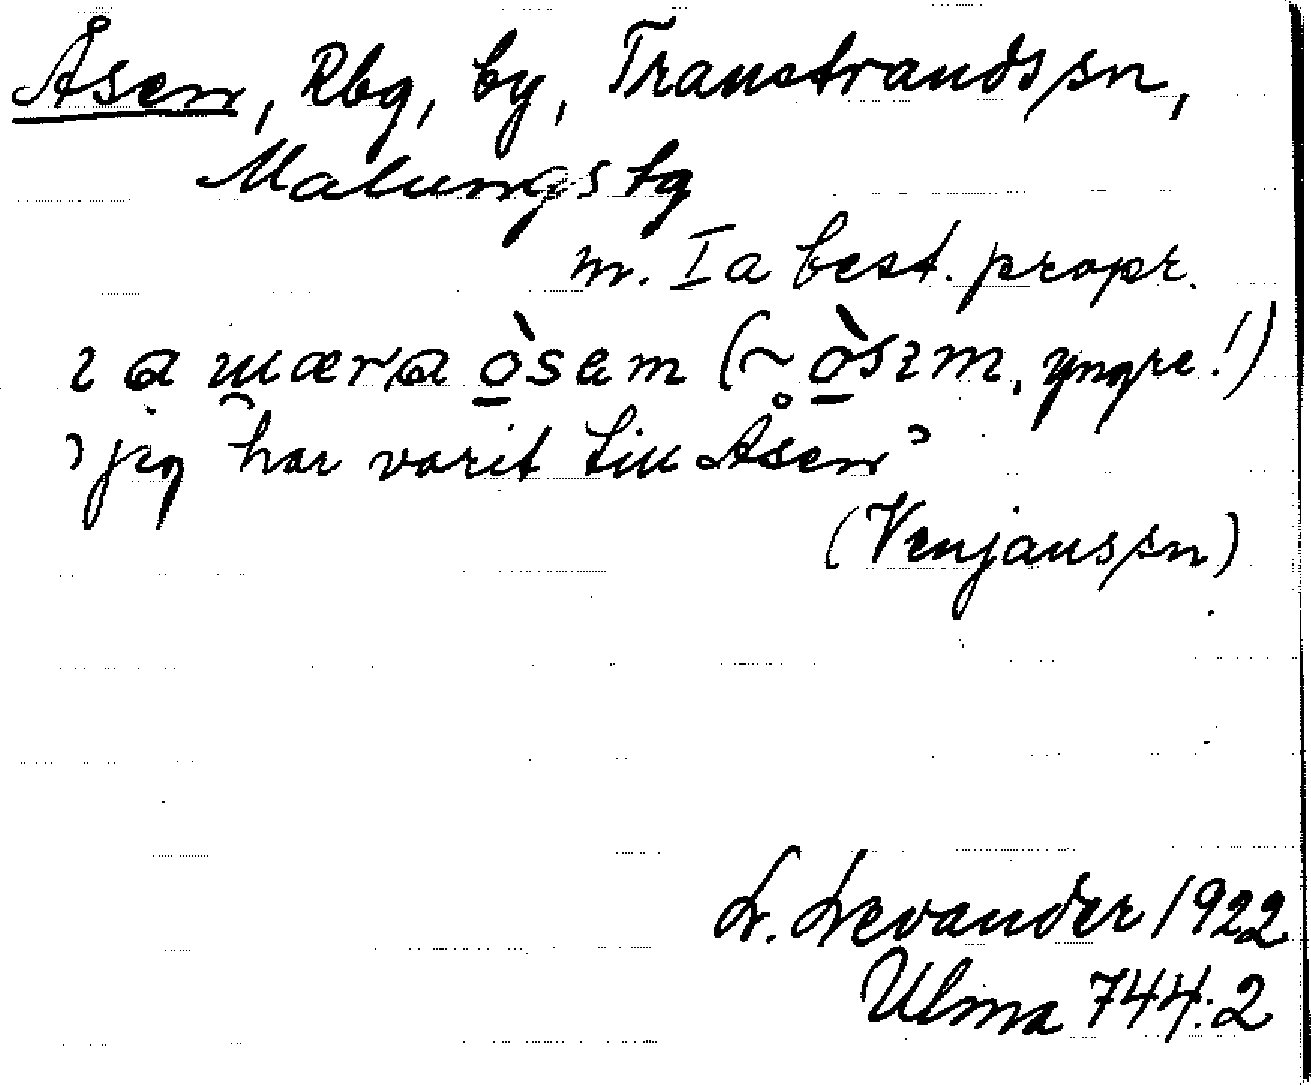 Åsen, Rbg, by, Transtrands sn,
Malungs tg
m. Ia best. propr.
ɩ a wæra ò̱sem (~ ò̱sɩm, yngre!)
'jag har varit till Åsen'
(Venjans sn)
L. Levander 1922
Ulma 744:2